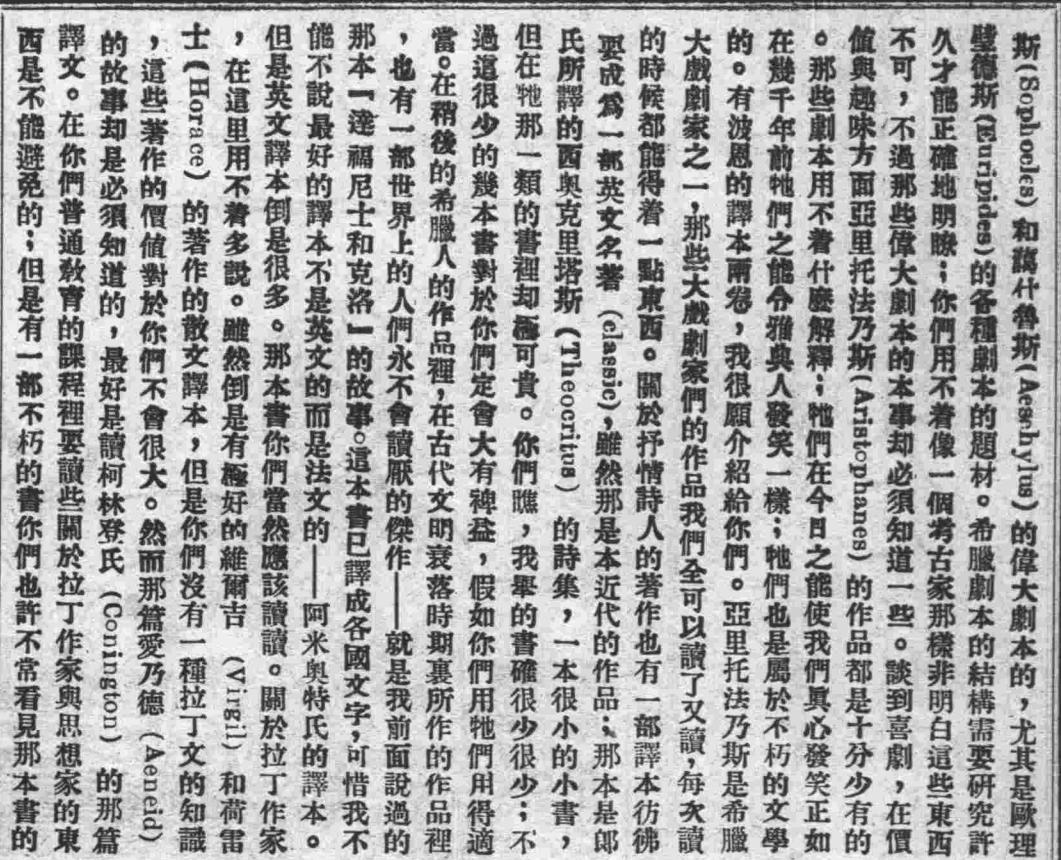 斯(Sophocles)和藹什魯斯(Aeschylus)的偉大劇本的，尤其是歐理
璧德斯(Euripides)的各種劇本的題材。希臘劇本的結構需要研究許
久才能正確地明瞭；你們用不着像一個考古家那樣非明白這些東西
不可，不過那些偉大劇本的本事却必須知道一些。談到喜劇，在價
值與趣味方面亞里托法乃斯(Aristophanes)的作品都是十分少有的
。那些劇本用不着什麼解釋；牠們在今日之能使我們眞心發笑正如
在幾千年前牠們之能令雅典人發笑一樣；牠們也是屬於不朽的文學
的。有波恩的譯本兩卷，我很願介紹給你們。亞里托法乃斯是希臘
大戲劇家之一，那些大戲劇家們的作品我們全可以讀了又讀，每次讀
的時候都能得着一點東西。關於抒情詩人的著作也有一部譯本彷彿
要成爲一部英文名著(classic)，雖然那是本近代的作品；那本是郎
氏所譯的西奧克里塔斯(Theocritus)的詩集，一本很小的小書，
但在牠那一類的書裡却極可貴。你們瞧，我舉的書確很少很少；不
過這很少的幾本書對於你們定會大有裨益，假如你們用牠們用得適
當。在稍後的希臘人的作品裡，在古代文明衰落時期裏所作的作品裡
，也有一部世界上的人們永不會讀厭的傑作——就是我前面說過的
那本「達福尼士和克洛」的故事。這本書已譯成各國文字，可惜我不
能不說最好的譯本不是英文的而是法文的——阿米奧特氏的譯本。
但是英文譯本倒是很多。那本書你們當然應該讀讀。關於拉丁作家
，在這里用不着多說。雖然倒是有極好的維爾吉(Virgil)和荷雷
士(Horace)的著作的散文譯本，但是你們沒有一種拉丁文的知識
，這些著作的價値對於你們不會很大。然而那篇愛乃德(Aeneid)
的故事却是必須知道的，最好是讀柯林登氏(Conington)的那篇
譯文。在你們普通敎育的課程裡要讀些關於拉丁作家與思想家的東
西是不能避免的；但是有一部不朽的書你們也許不常看見那本書的